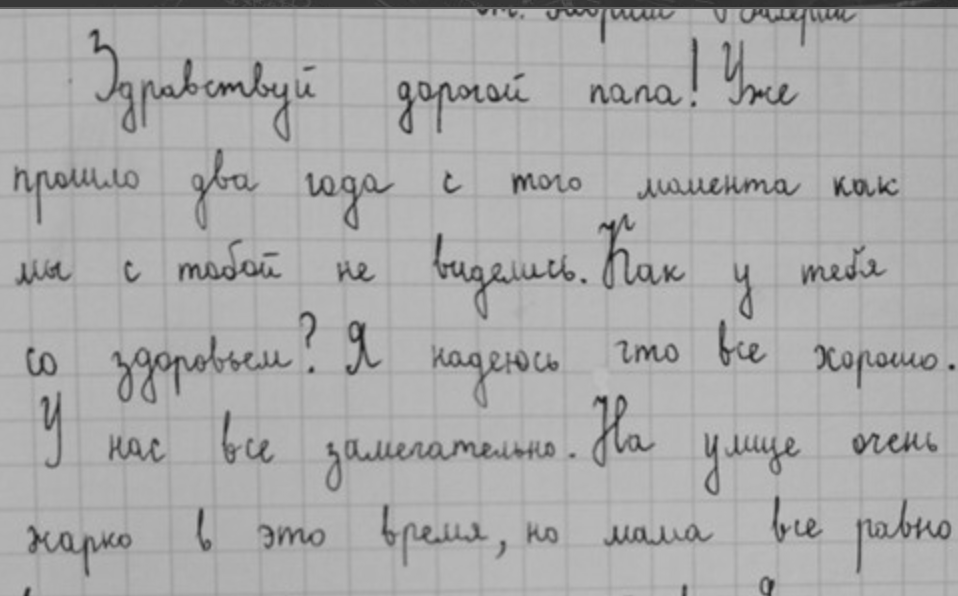 Здравствуй дорогой папа! Уже
прошло два года с того момента как
мы с тобой не виделись. Как у тебя
со здоровьем? Я надеюсь что все хорошо.
У нас все замечательно. На улице очень
жарко в это время, но мама все равно